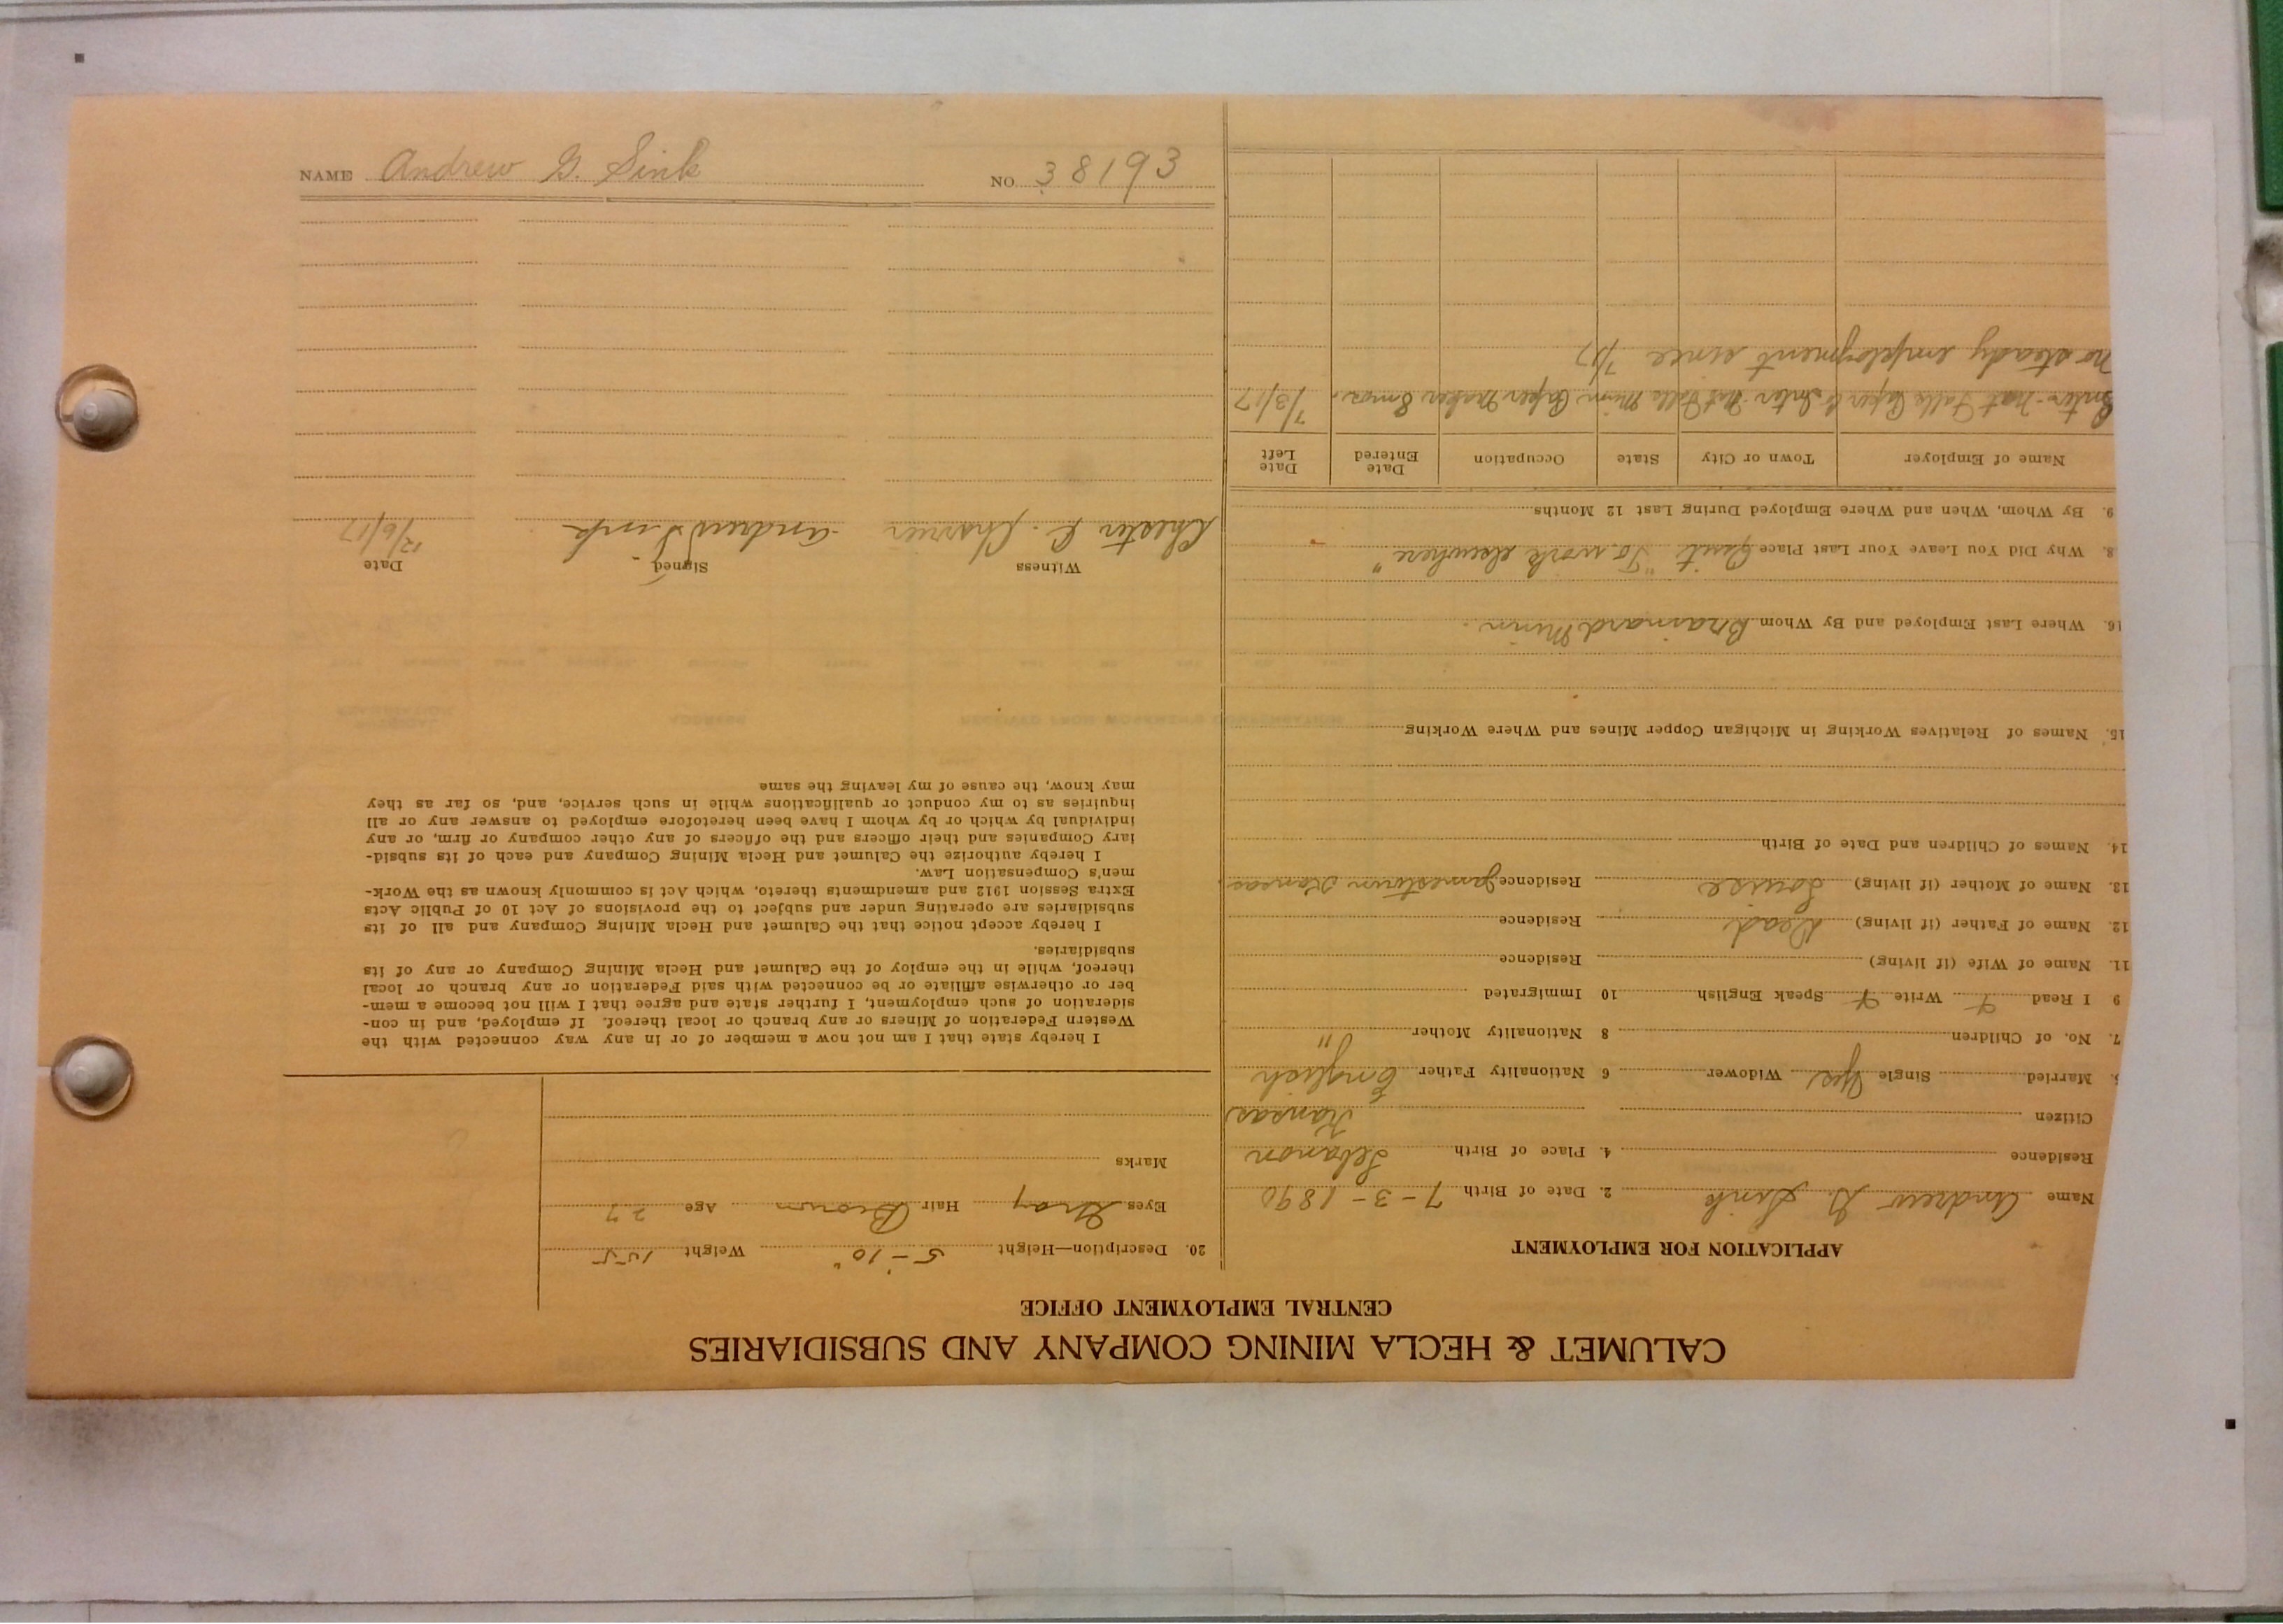 NAME Andrew G. Sink NO. 38193
CALUMET & HECLA MINING COMPANY AND SUBSIDIARIES
CENTRAL EMPLOYMENT OFFICE
APPLICATION FOR EMPLOYMENT
Name Andrew G. Sink 2. Date of Birth 7-3-1890
Residence 4. Place of Birth Lebanon
Citizen Kansas
5. Married Single Yes Widower 6 Nationality Father English
7. No. of Children 8 Nationality Mother "
9 I Read Write Speak English 10 Immigrated
11. Name of Wife (if living) Residence
12. Name of Father (if living) Dead Residence
13. Name of Mother (if living) Louise Residence Jamestown Kansas
14. Names of Children and Date of Birth
15. Names of Relatives Working in Michigan Copper Mines and Where Working
16. Where Last Employed and By Whom Brainard Minn.
8. Why Did You Leave Your Last Place Quit "To work elsewhere"
9. By Whom, When and Where Employed During Last 12 Months
Name of Employer Town or City State Occupation Date Entered Date Left
Inter-Nat Falls Paper Co Inter Nat Falls Minn Paper Maker 8 mos. 7/3/17
No steady employment since 7/17
20. Description—Height 5-10" Weight 155
Eyes Gray Hair Brown Age 27
Marks
I hereby state that I am not now a member of or in any way connected with the
Western Federation of Miners or any branch or local thereof. If employed, and in con-
sideration of such employment, I further state and agree that I will not become a mem-
ber or otherwise affiliate or be connected with said Federation or any branch or local
thereof, while in the employ of the Calumet and Hecla Mining Company or any of its
subsidiaries.
I hereby accept notice that the Calumet and Hecla Mining Company and all of its
subsidiaries are operating under and subject to the provisions of Act 10 of Public Acts
Extra Session 1912 and amendments thereto, which Act is commonly known as the Work-
men's Compensation Law.
I hereby authorize the Calumet and Hecla Mining Company and each of its subsid-
iary Companies and their officers and the officers of any other company or firm, or any
individual by which or by whom I have been heretofore employed to answer any or all
inquiries as to my conduct or qualifications while in such service, and, so far as they
may know, the cause of my leaving the same
Witness Signed Date
Chester C. Andrew Sink 12/6/17